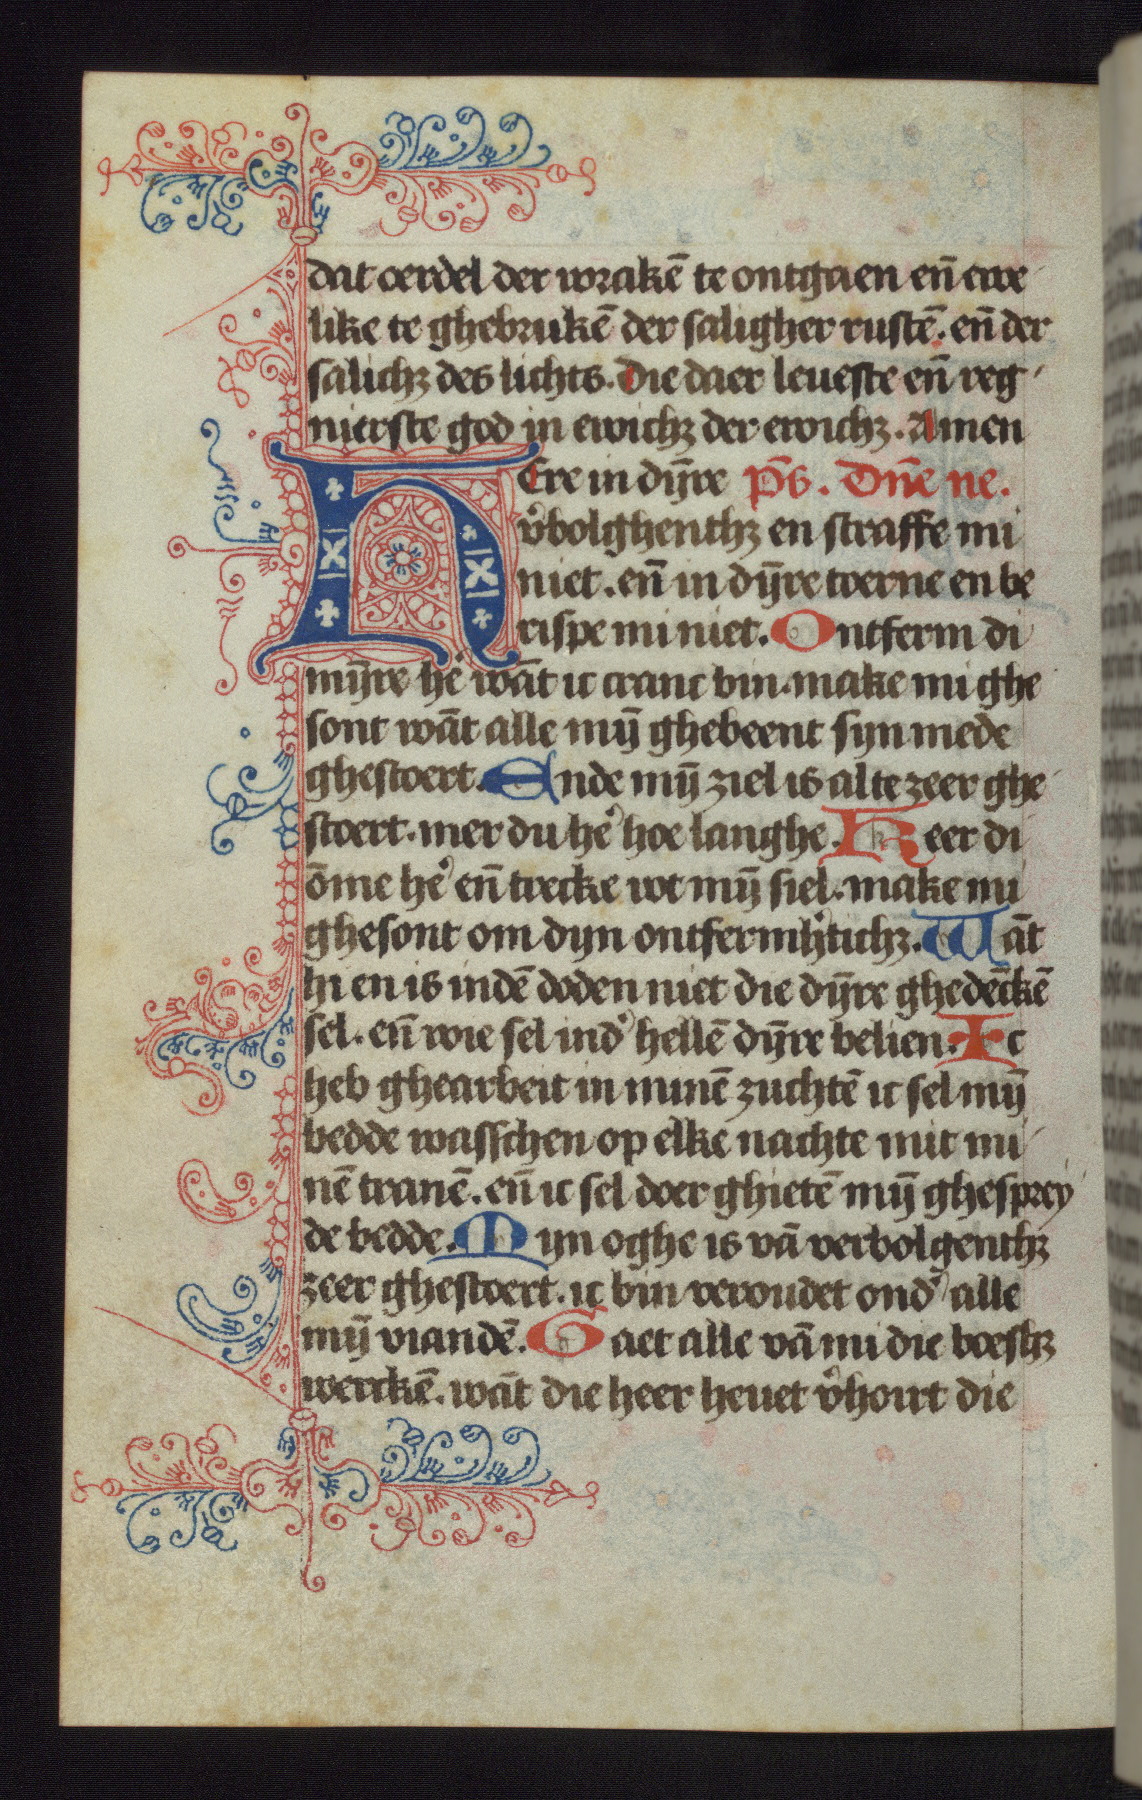 dat oerdel der wrakē te ontgaen en̄ ewe
like te ghebrukē der saligher rustē. en̄ der
salichꝫ des lichts. Die daer leueste en̄ reg
nierste god in ewichꝫ der ewichꝫ. Amen
HEre in dȳre p̄s. Dn̄e ne.
v̉bolghenthꝫ en straffe mi
niet. en̄ in dȳre toerne en be
rispe mi niet. Ontferm di
mȳre he᷎ wāt ic cranc bin. make mi ghe
sont wāt alle mȳ ghebeent syn mede
ghestoert. Ende mȳ ziel is alte zeer ghe
stoert. mer du he᷎ hoe langhe. Keer di
ōme he᷎ en̄ trecke wt mȳ siel. make mi
ghesont om dyn ontfermh᷎tichꝫ. Wāt
hi en is indē doden niet die dȳre ghedēckē
sel. en̄ wie sel ind᷎ hellē dȳre belien. Ic
heb ghearbeit in minē zuchtē ic sel mȳ
bedde wasschen op elke nachte mit mi
nē tranē. en̄ ic sel doer ghietē mȳ ghesprey
de bedde. Myn oghe is vā verbolgenthꝫ
zeer ghestoert. ic bin veroudet ond᷎ alle
mȳ viandē. Gaet alle vā mi die boeshꝫ
werckē. wāt die heer heuet v̉hoirt die